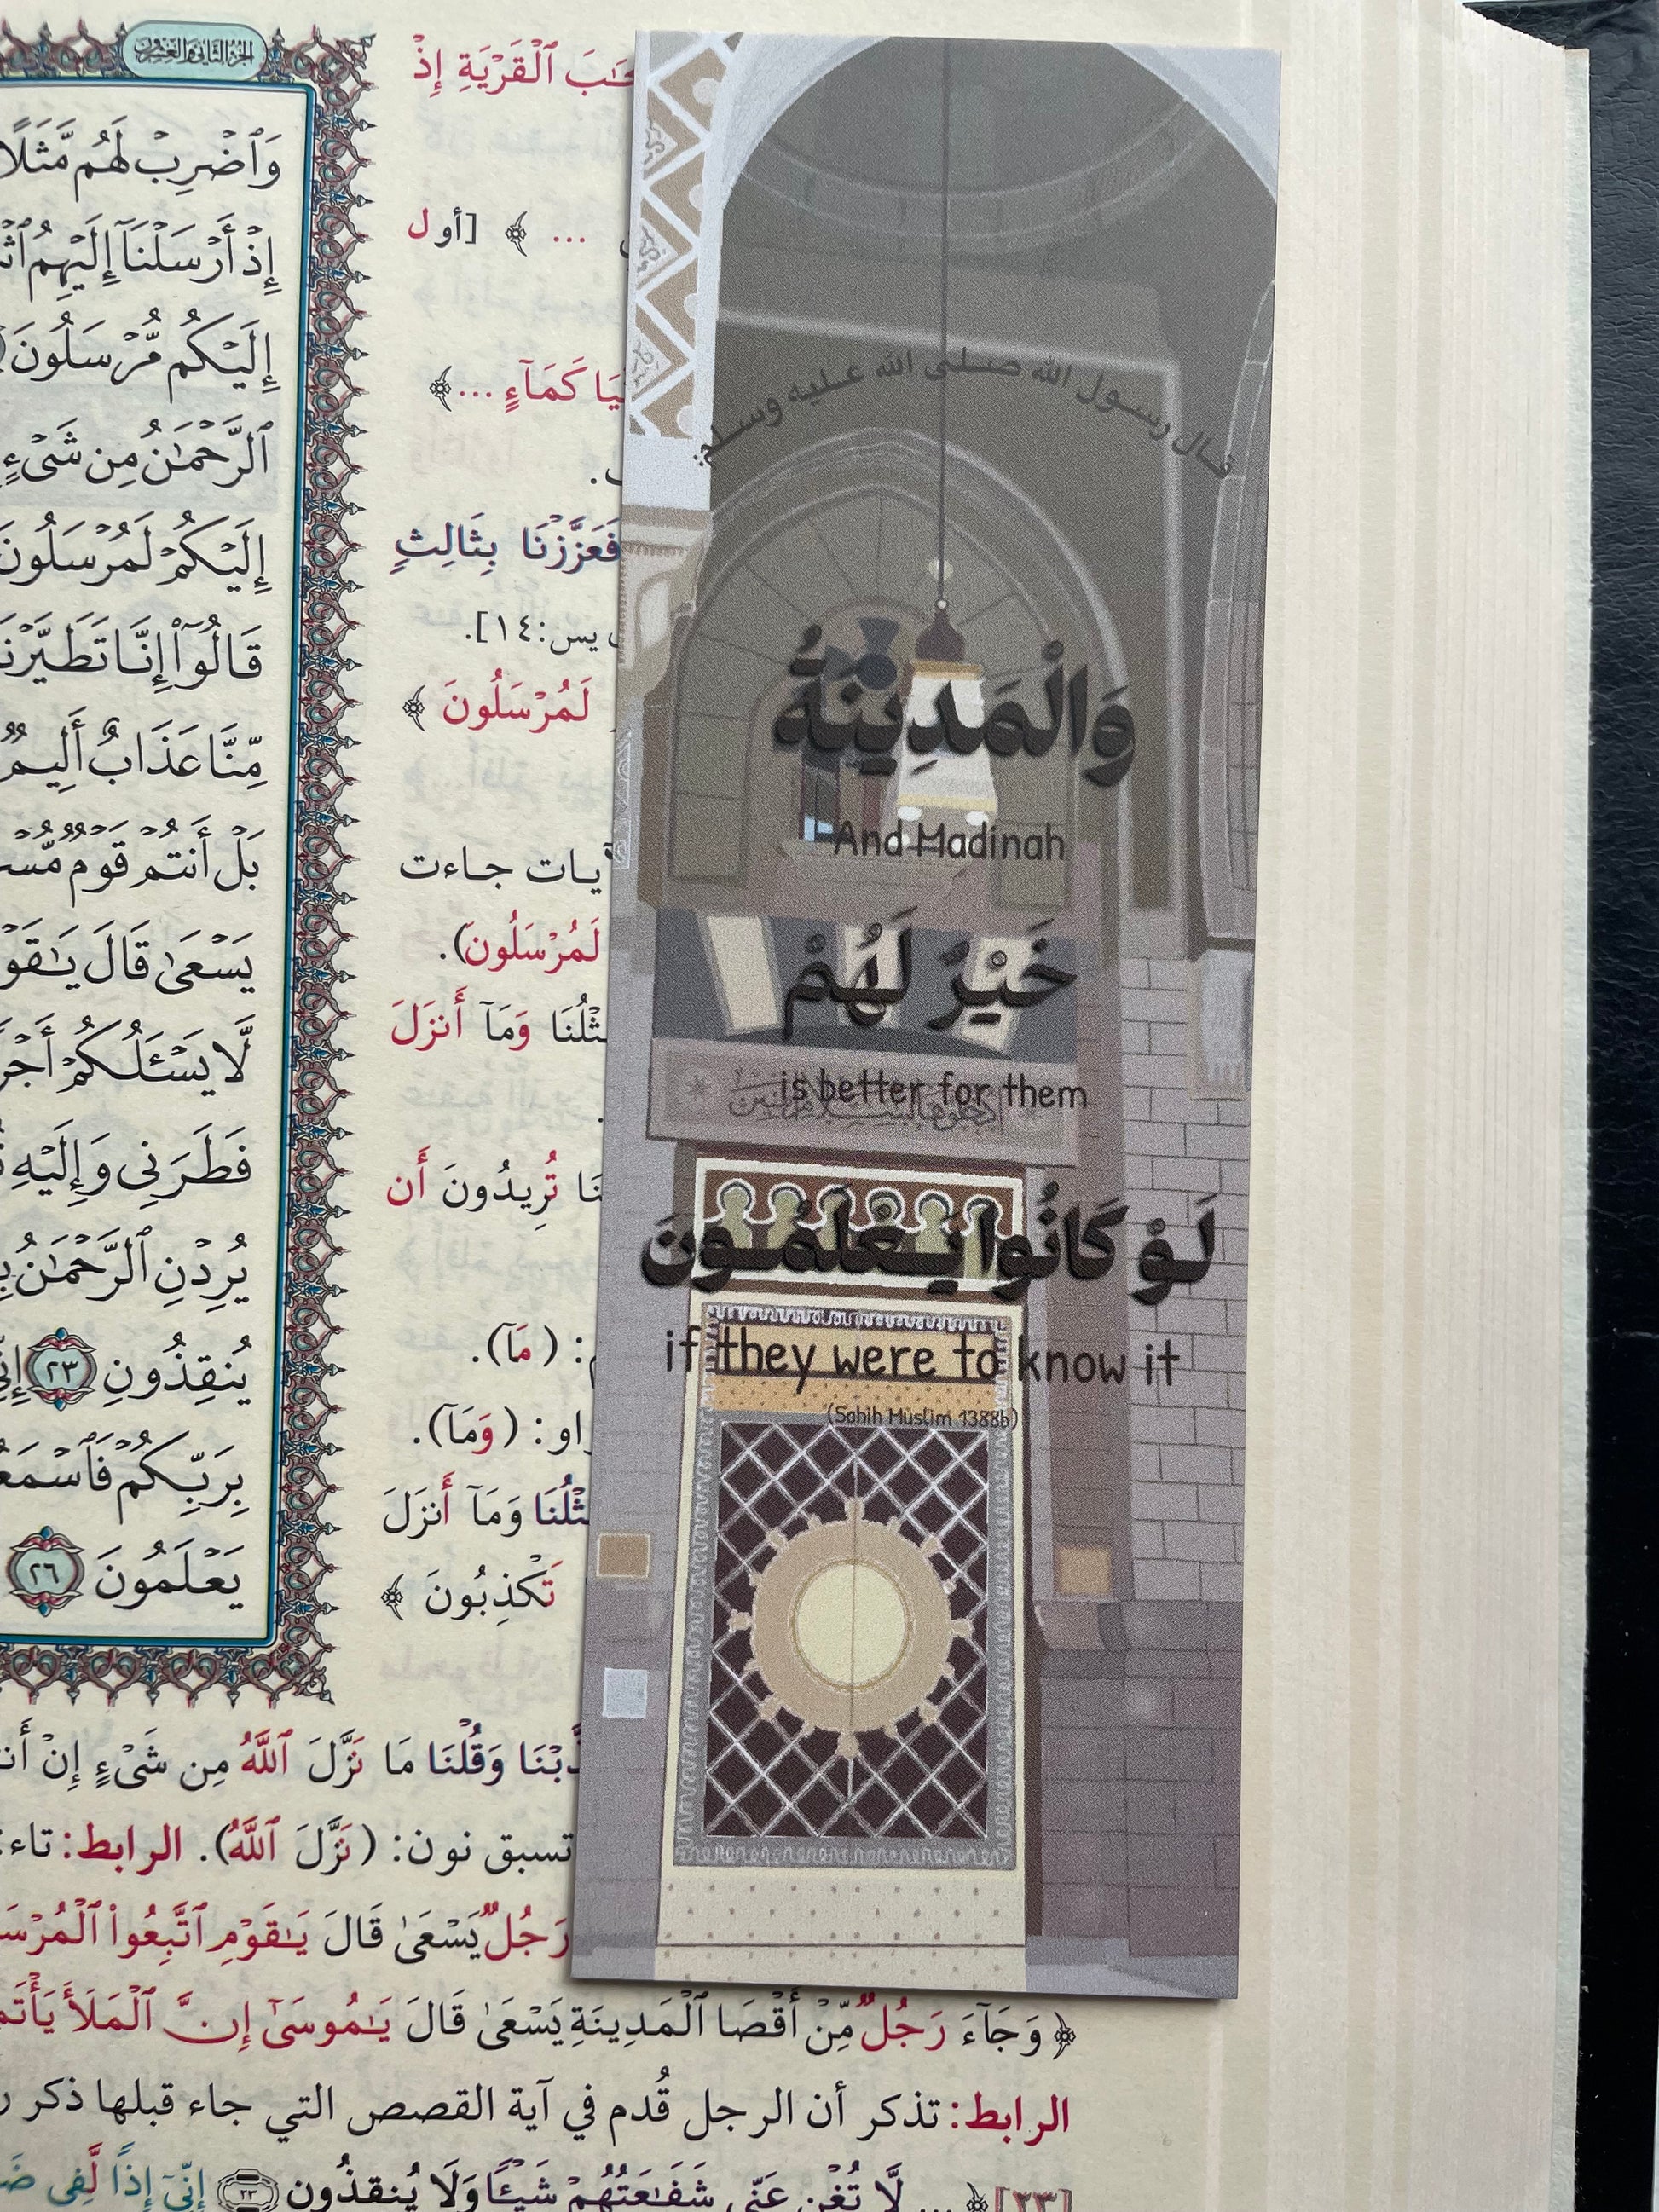 الجزء الثاني والعشرون
وَٱضْرِبْ لَهُم مَّثَلًا
إِذْ أَرْسَلْنَآ إِلَيْهِمُ
إِلَيْكُم مُّرْسَلُونَ
ٱلرَّحْمَٰنُ مِن شَىْءٍ
إِلَيْكُمْ لَمُرْسَلُونَ
قَالُوٓا۟ إِنَّا تَطَيَّرْنَا
مِّنَّا عَذَابٌ أَلِيمٌ
بَلْ أَنتُمْ قَوْمٌ
يَسْعَىٰ قَالَ
لَّا يَسْـَٔلُكُمْ
فَطَرَنِى وَإِلَيْهِ
يُرِدْنِ ٱلرَّحْمَٰنُ
يُنقِذُونِ ٢٣
بِرَبِّكُمْ
يَعْلَمُونَ ٢٦
ٱلْقَرْيَةِ إِذْ
... ﴾ [أول
كَمَآءٍ ... ﴾
فَعَزَّزْنَا بِثَالِثٍ
يس: ١٤].
لَمُرْسَلُونَ ﴾
جاءت
لَمُرْسَلُونَ).
وَمَآ أَنزَلَ
تُرِيدُونَ أَن
: (مَآ).
: (وَمَآ).
وَمَآ أَنزَلَ
تَكْذِبُونَ ﴾
قال رسول الله صلى الله عليه وسلم:
وَالْمَدِينَةُ
And Madinah
خَيْرٌ لَهُمْ
is better for them
لَوْ كَانُوا يَعْلَمُونَ
if they were to know it
(Sahih Muslim 1388b)
وَقُلْنَا مَا نَزَّلَ ٱللَّهُ مِن شَىْءٍ إِنْ
تسبق نون: (نَزَّلَ ٱللَّهُ). الرابط: تاء
رَجُلٌ يَسْعَىٰ قَالَ يَٰقَوْمِ ٱتَّبِعُوا۟
﴿ وَجَآءَ رَجُلٌ مِّنْ أَقْصَا ٱلْمَدِينَةِ يَسْعَىٰ قَالَ يَٰمُوسَىٰٓ إِنَّ ٱلْمَلَأَ
الرابط: تذكر أن الرجل قُدم في آية القصص التي جاء قبلها ذكر
[٢٣] ﴿ ... لَّا تُغْنِ عَنِّى شَفَٰعَتُهُمْ شَيْـًٔا وَلَا يُنقِذُونِ ٢٣ إِنِّىٓ إِذًا لَّفِى